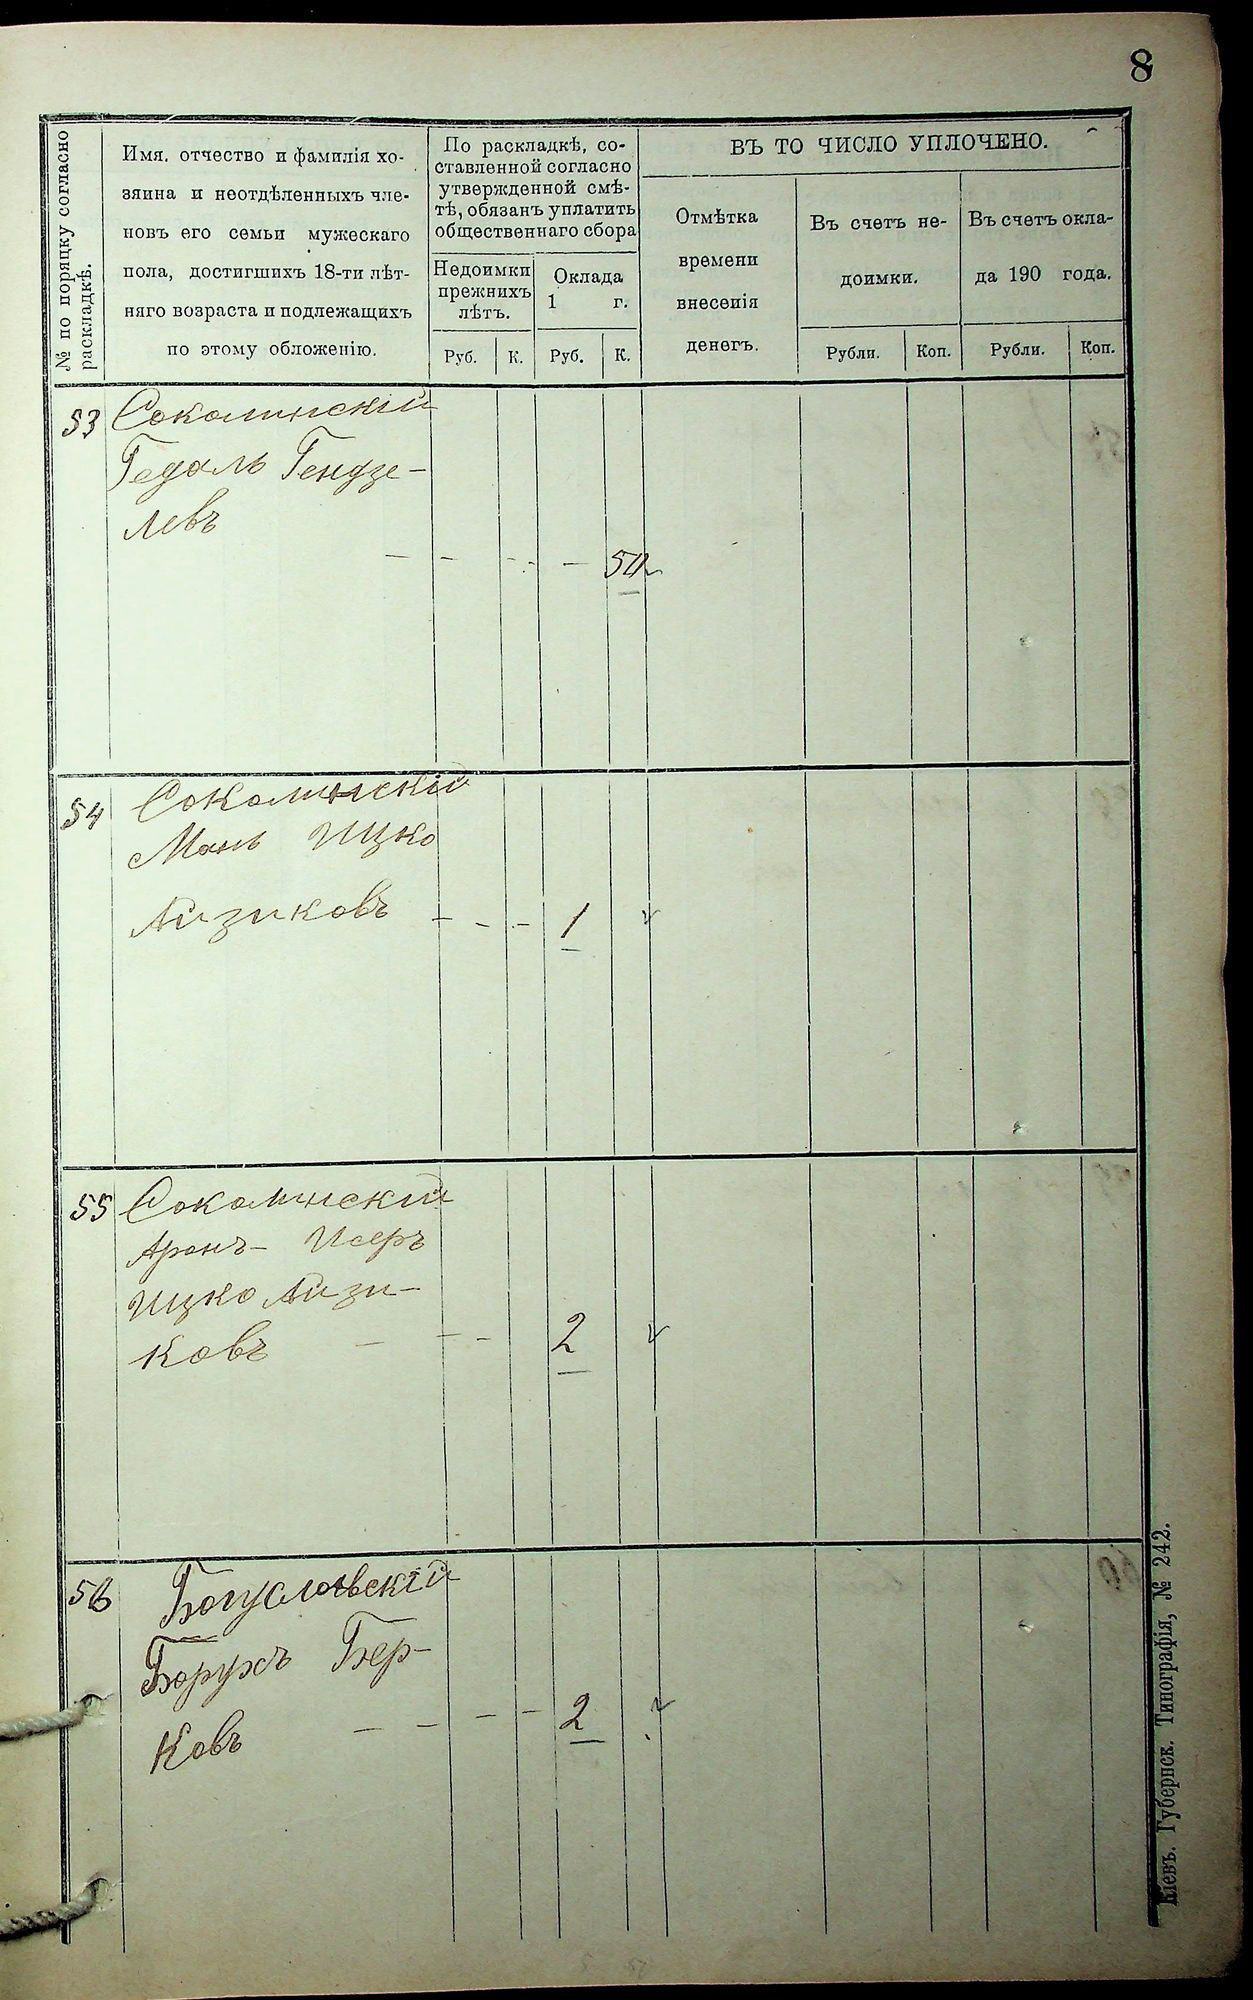 8
№ по порядку согласно
раскладкѣ.
Имя, отчество и фамилія хо-
зяина и неотдѣленныхъ чле-
новъ его семьи мужескаго
пола, достигшихъ 18-ти лѣт-
няго возраста и подлежащихъ
по этому обложенію.
По раскладкѣ, со-
ставленной согласно
утвержденной смѣ-
тѣ, обязанъ уплатить
общественнаго сбора
Недоимки
прежнихъ
лѣтъ.
Оклада
1 г.
Руб. К. Руб. К.
ВЪ ТО ЧИСЛО УПЛОЧЕНО.
Отмѣтка
времени
внесенія
денегъ.
Въ счетъ не-
доимки.
Въ счетъ окла-
да 190 года.
Рубли. Коп. Рубли. Коп.
53 Соколинскій
Гедаль Гендзе-
левъ
— — - - — 50
54 Соколинскій
Мань Ицко
Айзиковъ - - - 1
55 Соколинскій
Аронъ- Исеръ
Ицко Айзи-
ковъ — - - 2
56 Богуславскій
Борухъ Бер-
ковъ — — — — 2
Кіевъ. Губернск. Типографія, № 242.